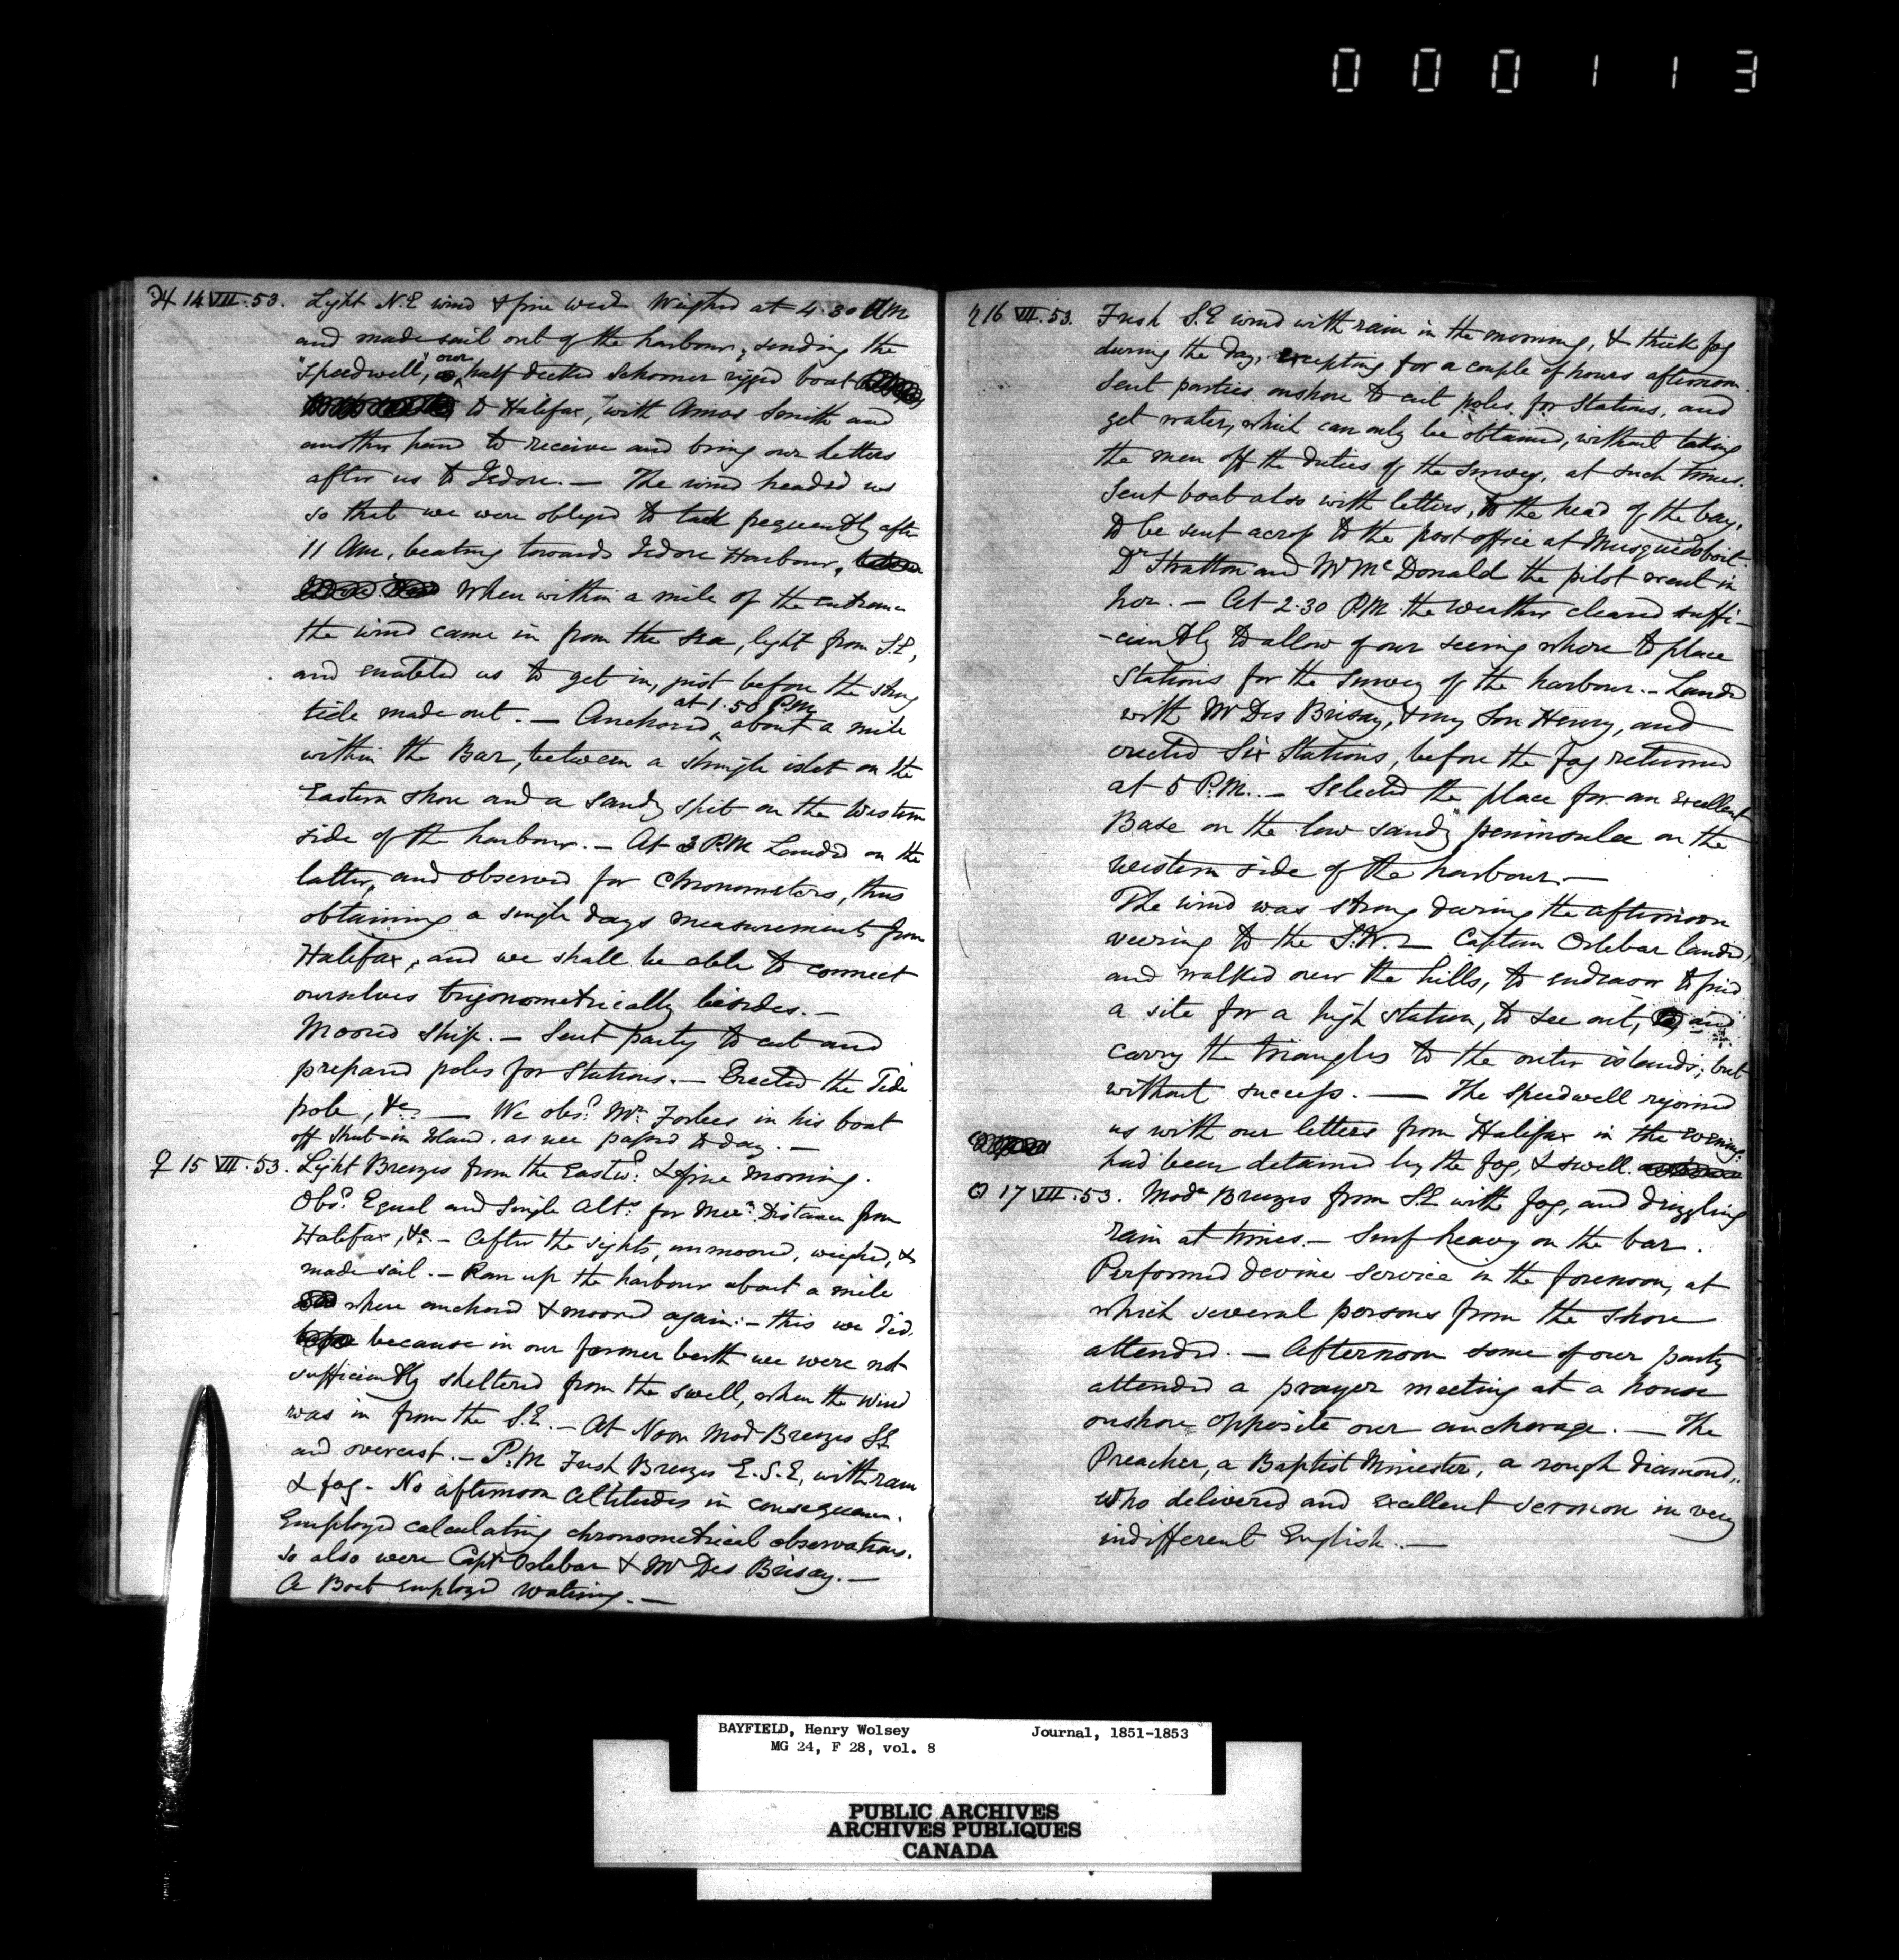 000113
♃ 14 VII. 53. Light N.E wind & fine weat Weighed at 4.30 AM
and made sail out of the harbour, sending the
"Speedwell," our half decked Schooner rigged boat
to Halifax, with Amos Smith and
another hand to receive and bring our letters
after us to Jedore. — The wind headed us
so that we were obliged to tack frequently after
11 AM, beating towards Jedore Harbour,
When within a mile of the entrance
the wind came in from the sea, light from S.E,
and enabled us to get in, just before the strong
tide made out. — Anchored at 1.50 P.M. about a mile
within the Bar, between a shingle islet on the
Eastern shore and a sandy spit on the Western
side of the harbour. — At 3 P.M Landed on the
latter, and observed for Chronometers, thus
obtaining a single days measurement from
Halifax, and we shall be able to connect
ourselves trigonometrically besides. —
Moored ship. — Sent party to cut and
prepared poles for Stations. — Erected the Tide
pole, &c. — We obsd. Mr. Forbes in his boat
off Shut-in Island, as we passed to day. —
♀ 15 VII. 53. Light Breezes from the Eastwd: & fine morning.
Obsd. Equal and Single Alts. for Mern. Distance from
Halifax, &c. — After the sights, unmoored, weighed, &
made sail. — Ran up the harbour about a mile
where anchored & moored again: — this we did
because in our former berth we were not
sufficiently sheltered from the swell, when the wind
was in from the S.E. — At Noon Mod Breezes S.E
and overcast. — P.M Fresh Breezes E.S.E, with rain
& fog. No afternoon altitudes in consequence.
Employed calculating chronometrical observations.
So also were Captn Orlebar & Mr Des Brisay. —
A Boat employed watering. —
♄ 16 VII. 53. Fresh S.E wind with rain in the morning, & thick fog
during the day, excepting for a couple of hours afternoon.
Sent parties onshore to cut poles for Stations, and
get water, which can only be obtained, without taking
the men off the duties of the survey, at such times.
Sent boat also with letters, to the head of the bay,
to be sent across to the post office at Musquidoboit.
Dr Stratton and Mr McDonald the pilot went in
her. — At 2.30 P.M. the weather cleared suffi-
-ciently to allow of our seeing where to place
Stations for the Survey of the harbour. — Landed
with Mr Des Brisay, & my Son Henry, and
erected Six Stations, before the fog returned
at 5 P.M. — Selected the place for an excellent
Base on the low sandy peninsula on the
western side of the harbour. —
The wind was strong during the afternoon
veering to the S.W. — Captain Orlebar landed,
and walked over the hills, to endeavor to find
a site for a high station, to see out, and
carry the triangles to the outer islands; but
without success. — The Speedwell rejoined
us with our letters from Halifax in the evening:
had been detained by the fog, & swell.
☉ 17 VII. 53. Modte Breezes from S.E with fog, and drizzling
rain at times. — Surf heavy on the bar.
Performed devine service in the forenoon, at
which several persons from the shore
attended. — Afternoon some of our party
attended a prayer meeting at a house
onshore opposite our anchorage. — The
Preacher, a Baptist Minister, a rough diamond,
who delivered and excellent sermon in very
indifferent English. —
BAYFIELD, Henry Wolsey Journal, 1851-1853
MG 24, F 28, vol. 8
PUBLIC ARCHIVES
ARCHIVES PUBLIQUES
CANADA